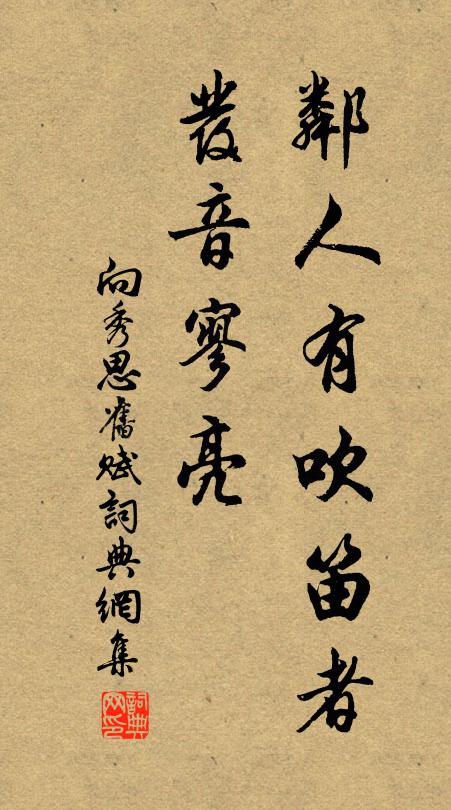 鄰人有吹笛者
發音寥亮
向秀思舊賦詞典網集
詞典网印